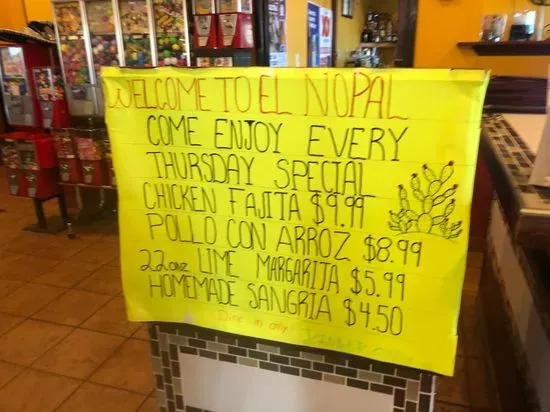 WELCOME TO EL NOPAL
COME ENJOY EVERY
THURSDAY SPECIAL
CHICKEN FAJITA $9.99
POLLO CON ARROZ $8.99
22onz LIME MARGARITA $5.99
HOMEMADE SANGRIA $4.50
Dine in only